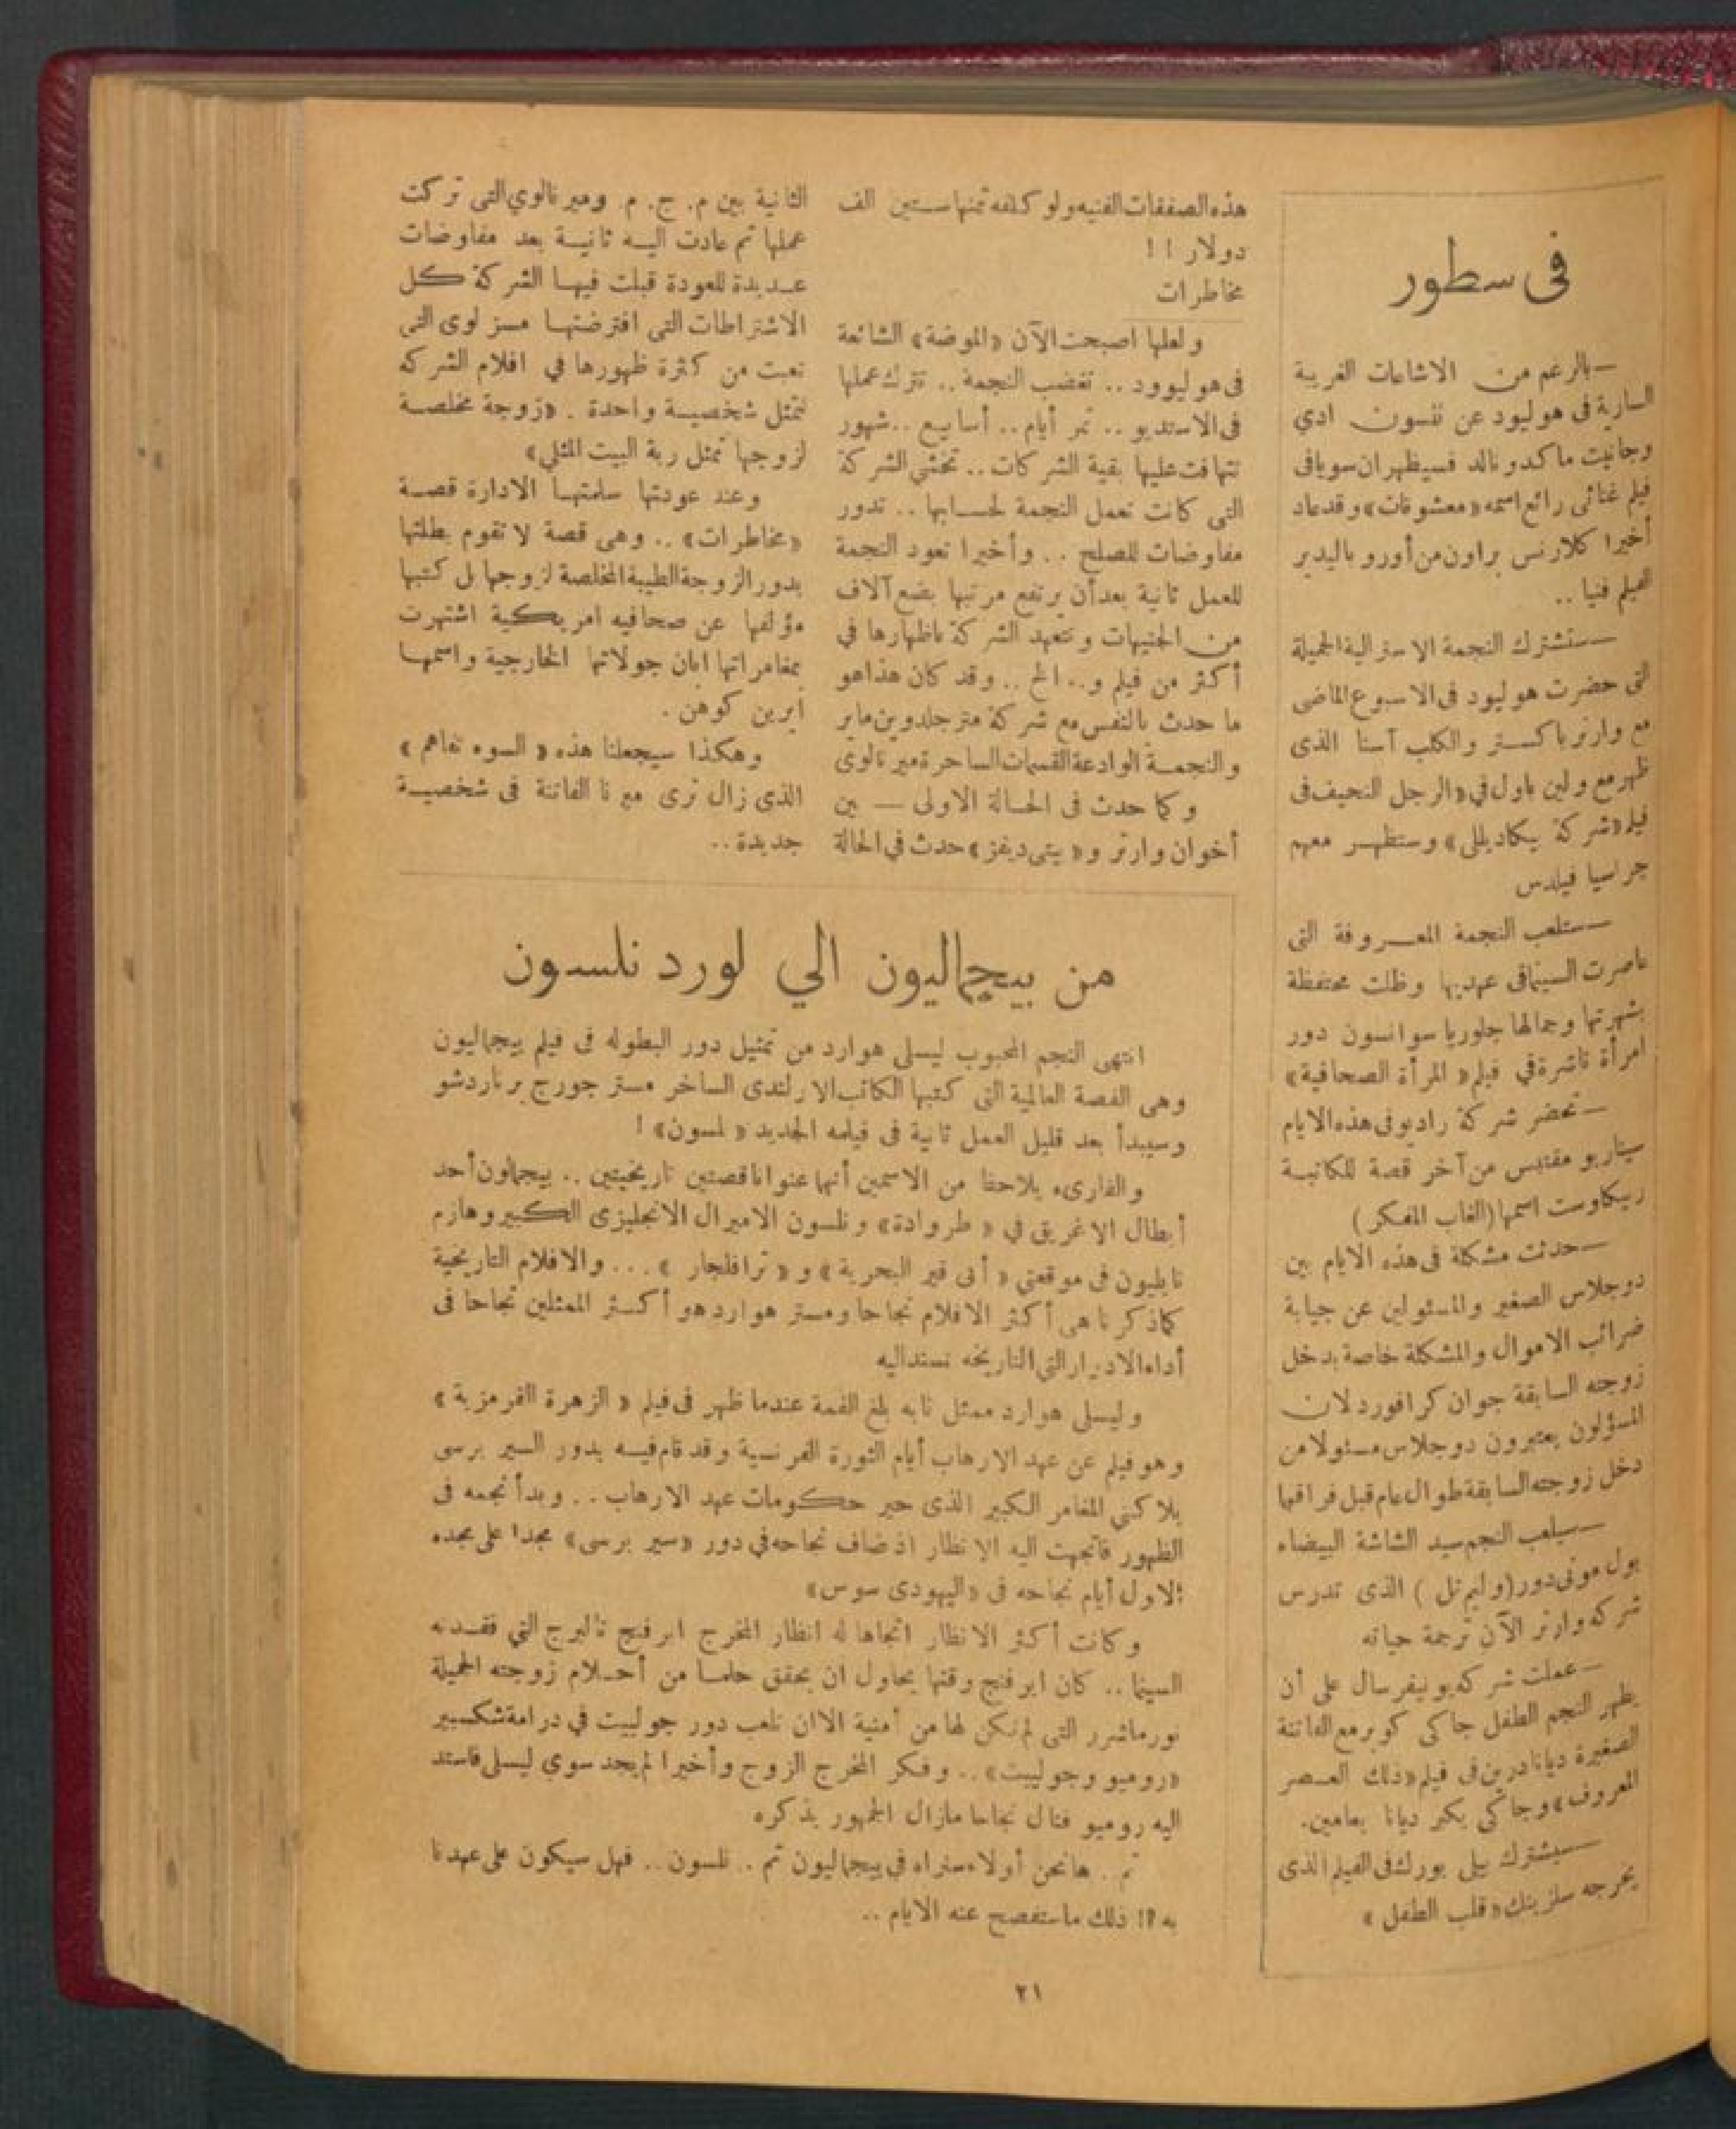 فى سطور
—بالرغم من الاشاعات الغريبة
السارية فى هوليود عن نلسون ادي
وجانيت ماكدونالد فسيظهران سويا فى
فيلم غنائى رائع اسمه «معشوقات» وقدعاد
أخيرا كلارنس براون من أوروبا ليدير
الفيلم فنيا ..
—ستشترك النجمة الاسترالية الجميلة
التى حضرت هوليود فى الاسبوع الماضى
مع وارنر باكستر والكلب آستا الذى
ظهر مع ولين باول في «الرجل النحيف فى
فيلم «شركة بيكاديللى» وستظهر معهم
جراسيا فيلدس
—ستلعب النجمة المعروفة التى
عاصرت السينما فى عهديها وظلت محتفظة
بشهرتها وجمالها جلوريا سوانسون دور
امرأة ناشرة في فيلم «المرأة الصحافية»
—تحضر شركة راديو فى هذه الايام
سيناريو مقتبس من آخر قصة للكاتبة
ربيكاوست اسمها (الغاب المفكر)
—حدثت مشكلة فى هذه الايام بين
دوجلاس الصغير والمسئولين عن جباية
ضرائب الاموال والمشكلة خاصة بدخل
زوجته السابقة جوان كرافورد لان
المسؤلون يعتبرون دوجلاس مسئولا من
دخل زوجته السابقة طوال عام قبل فراقها
—سيلعب النجم سيد الشاشة البيضاء
بول مونى دور (وليم تل) الذى تدرس
شركه وارنر الآن ترجمة حياته
—عملت شركه يونيفرسال على أن
يظهر النجم الطفل جاكى كوبر مع الفاتنة
الصغيرة ديانا دربن فى فيلم «ذلك العصر
المعروف» وجاكى يكبر ديانا بعامين.
—سيشترك بيلى بورك فى الفيلم الذى
يخرجه سلزنيك «قلب الطفل»
هذه الصفقات الفنيه ولو كلفه ثمنها ستين الف
دولار !!
مخاطرات
ولعلها اصبحت الآن «الموضة» الشائعة
فى هوليوود .. تغضب النجمة .. تترك عملها
فى الاستديو .. تمر أيام .. أسابيع .. شهور
تتهافت عليها بقية الشركات .. تخشى الشركة
التى كانت تعمل النجمة لحسابها .. تدور
مفاوضات للصلح .. وأخيرا تعود النجمة
للعمل ثانية بعد أن يرتفع مرتبها بضع آلاف
من الجنيهات وتتعهد الشركة باظهارها في
أكثر من فيلم و.. الخ .. وقد كان هذا هو
ما حدث بالنفس مع شركة مترجلدوين ماير
والنجمة الوادعة القسمات الساحرة ميرنالوى
وكما حدث فى الحالة الاولى — بين
أخوان وارنر و«بيتى ديفز» حدث في الحالة
الثانية بين م. ج. م. وميرنالوي التى تركت
عملها ثم عادت اليه ثانية بعد مفاوضات
عديدة للعودة قبلت فيها الشركة كل
الاشتراطات التى افترضتها مسز لوى التى
تعبت من كثرة ظهورها في افلام الشركه
تمثل شخصية واحدة . «زوجة مخلصة
لزوجها تمثل ربة البيت المثلى»
وعند عودتها سلمتها الادارة قصة
«مخاطرات» .. وهى قصة لا تقوم بطلتها
بدور الزوجة الطيبة المخلصة لزوجها بل كتبها
مؤلفها عن صحافيه امريكية اشتهرت
بمغامراتها ابان جولاتها الخارجية واسمها
ايرين كوهن .
وهكذا سيجعلنا هذه «السوء تفاهم»
الذى زال نرى ميرنا الفاتنة فى شخصية
جديدة..
من بيجماليون الي لورد نلسون
انتهى النجم المحبوب ليسلى هوارد من تمثيل دور البطوله فى فيلم بيجماليون
وهى القصة العالمية التى كتبها الكاتب الارلندى الساخر مستر جورج برناردشو
وسيبدأ بعد قليل العمل ثانية فى فيلمه الجديد «نلسون» !
والقارىء يلاحظ من الاسمين أنهما عنوانا قصتين تاريخيتين .. بيجمالون أحد
أبطال الاغريق في «طروادة» ونلسون الاميرال الانجليزى الكبير وهازم
نابليون فى موقعتى «أبى قير البحرية» و«ترافلجار» ... والافلام التاريخية
كما ذكرنا هى أكثر الافلام نجاحا ومستر هوارد هو أكستر الممثلين نجاحا فى
أداء الاديرار التى التاريخه تسند اليه
وليسلى هوارد ممثل نابه بلغ القمة عندما ظهر فى فيلم «الزهرة القرمزية»
وهو فيلم عن عهد الارهاب أيام الثورة الفرنسية وقد قام فيه بدور السير برسى
بلاكنى المغامر الكبير الذى حير حكومات عهد الارهاب .. وبدأ نجمه فى
الظهور فاتجهت اليه الانظار اذ ضاف نجاحه في دور «سير برسى» مجدا على مجده
الاول أيام نجاحه فى «اليهودى سوس»
وكانت أكثر الانظار اتجاها له انظار المخرج ايرفنج تالبرج التي فقدته
السينما .. كان ايرفنج وقتها يحاول ان يحقق حلما من أحلام زوجته الجميلة
نورماشرر التى لم تكن لها من أمنية الا ان تلعب دور جولييت في درامة شكسبير
«روميو وجولييت» .. وفكر المخرج الزوج وأخيرا لم يجد سوي ليسلى فاسند
اليه روميو فنال نجاحا مازال الجمهور يذكره
ثم . هانحن أولاء سنراه في بيجماليون ثم . نلسون .. فهل سيكون على عهدنا
به ؟!! ذلك ماستفصح عنه الايام ..
٢١